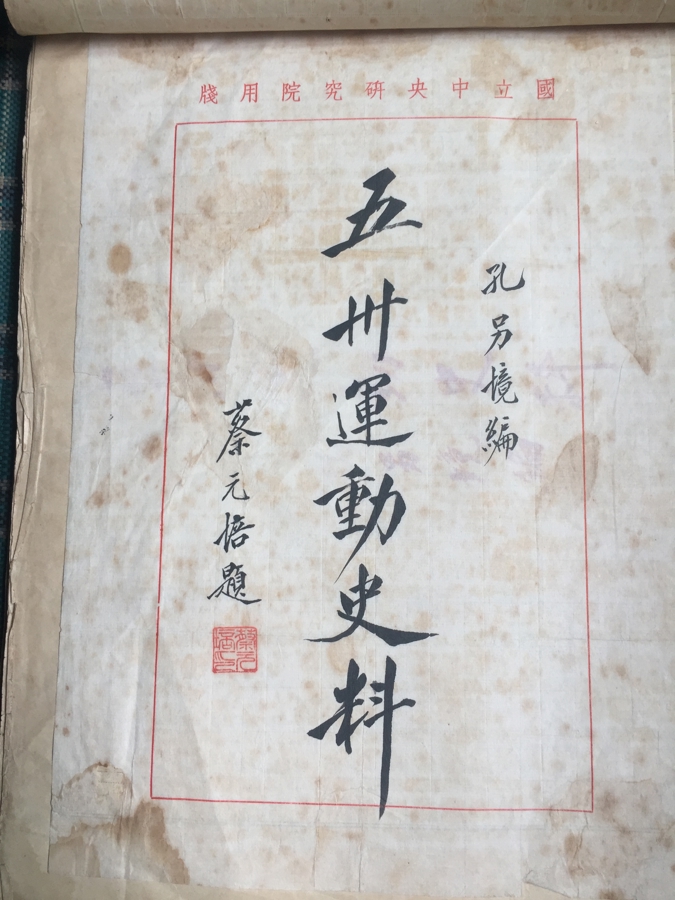 國立中央研究院用牋
孔另境編
五卅運動史料
蔡元培題
蔡元培印